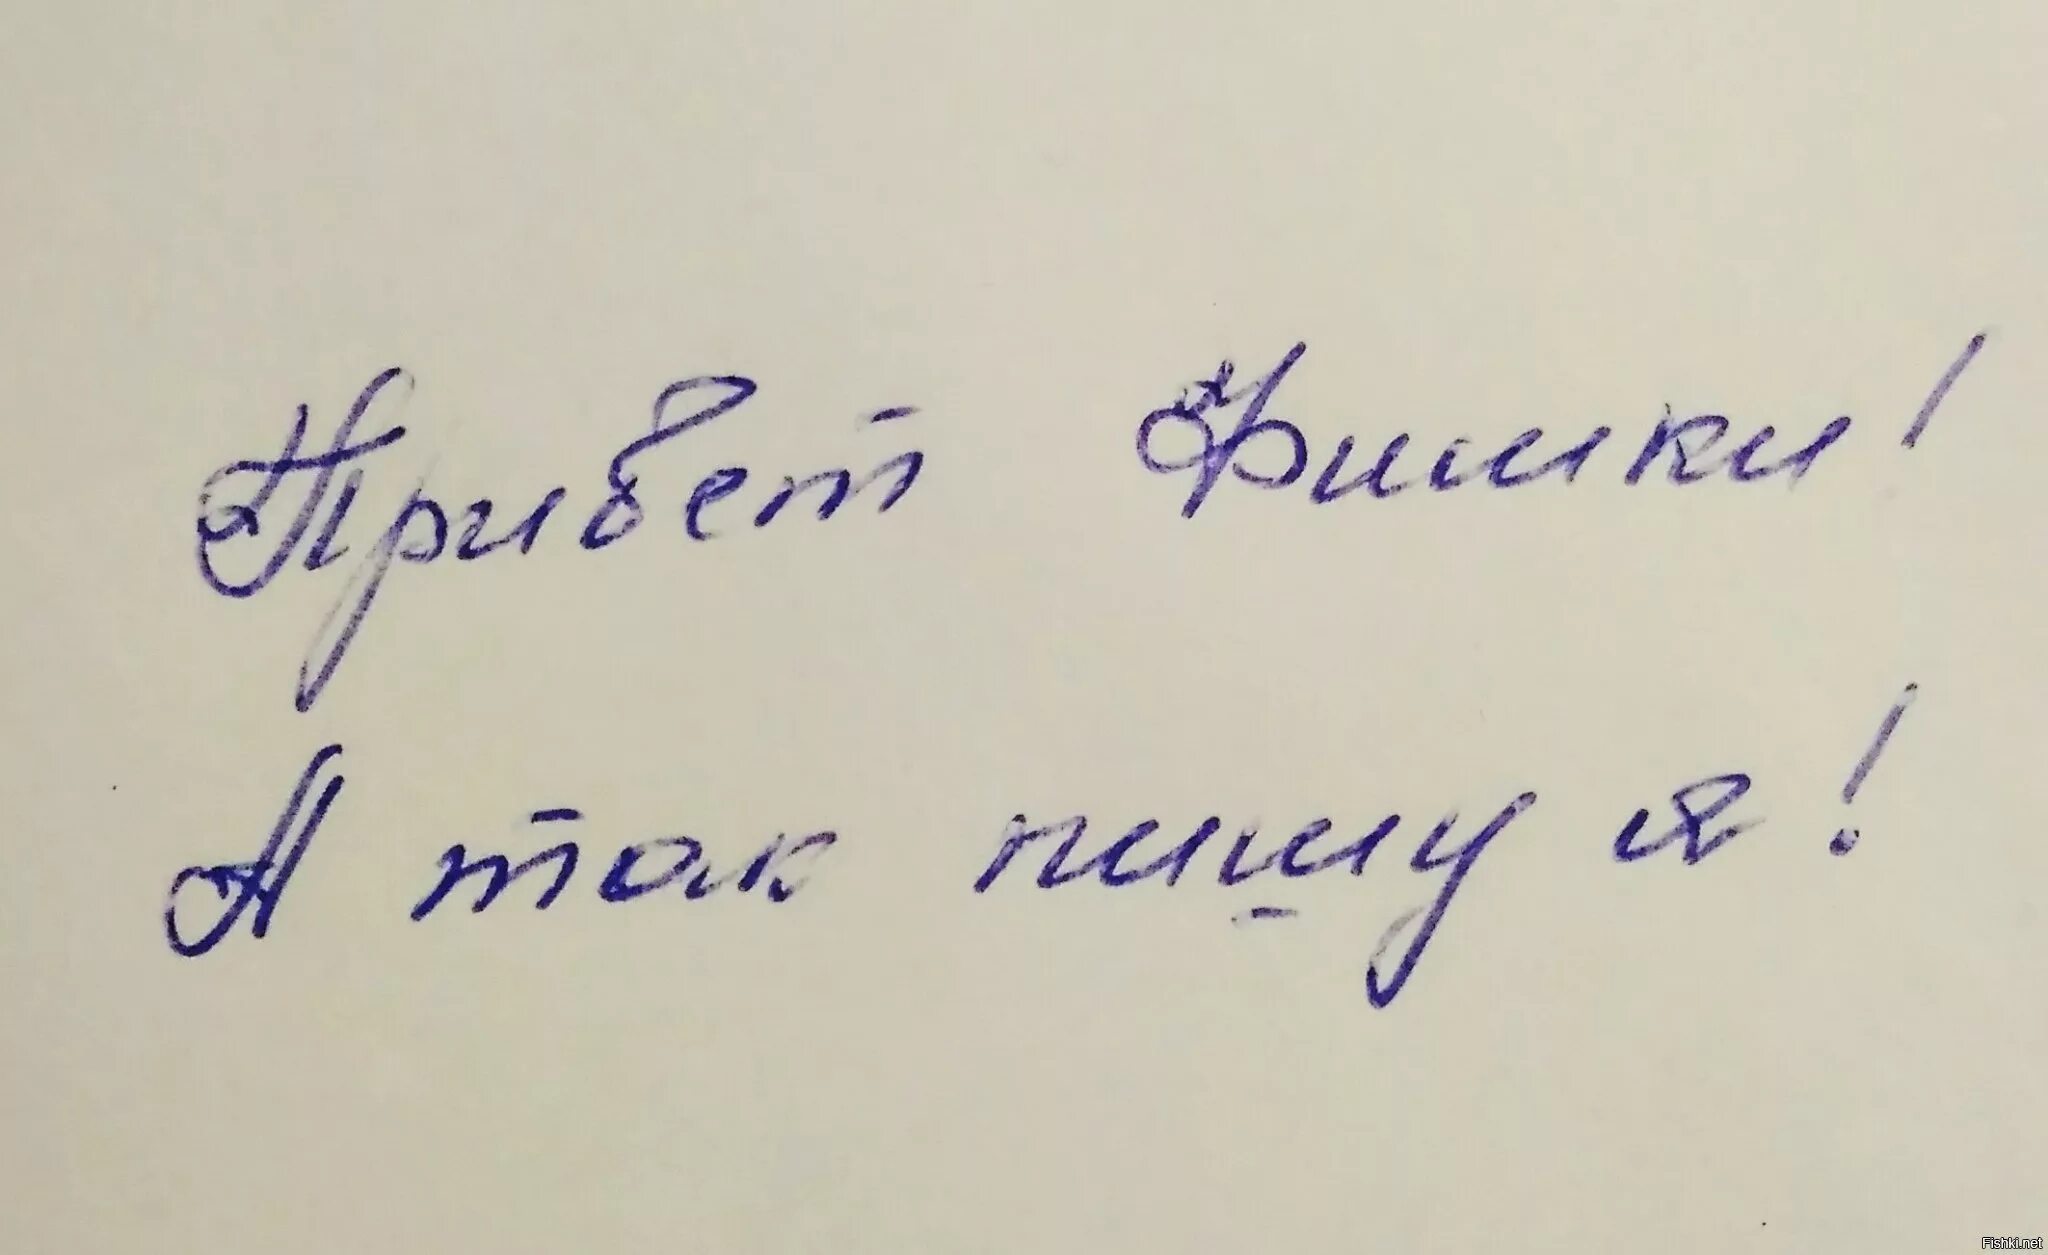 Привет Фишки!
А так пишу я!
Fishki.net